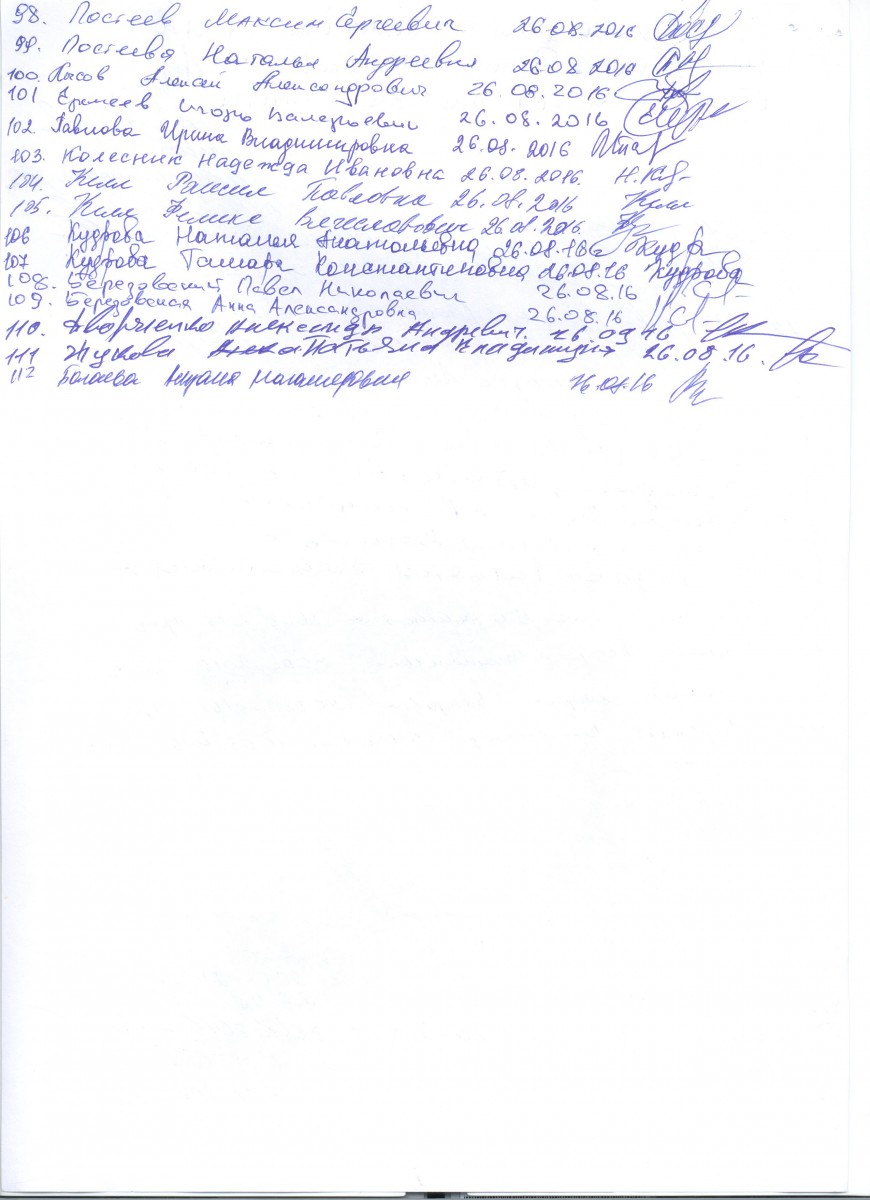 98. Постеев Максим Сергеевич 26.08.2016
99. Постеева Наталья Андреевна 26.08 2016
100. Алексей Александрович 26.08.2016
101 Еремеев Игорь Валерьевич 26.08.2016
102. Павлова Ирина Владимировна 26.08.2016
103. Колесник Надежда Ивановна 26.08.2016. Н.Кол-
104. Ким Павловна 26.08.2016 Ким
105. Ким Феликс Вячеславович 26.08.2016.
106 Кудрова Наталия Анатольевна 26.08.16 Кудр
107 Кудрова Тамара Константиновна 26.08.16 Кудрова
108. Березовский Павел Николаевич 26.08.16
109. Березовская Анна Александровна 26.08.16
110. Александр Андревич. 26.09 16
111 Жукова Татьяна Владимир 26.08.16.
112 16